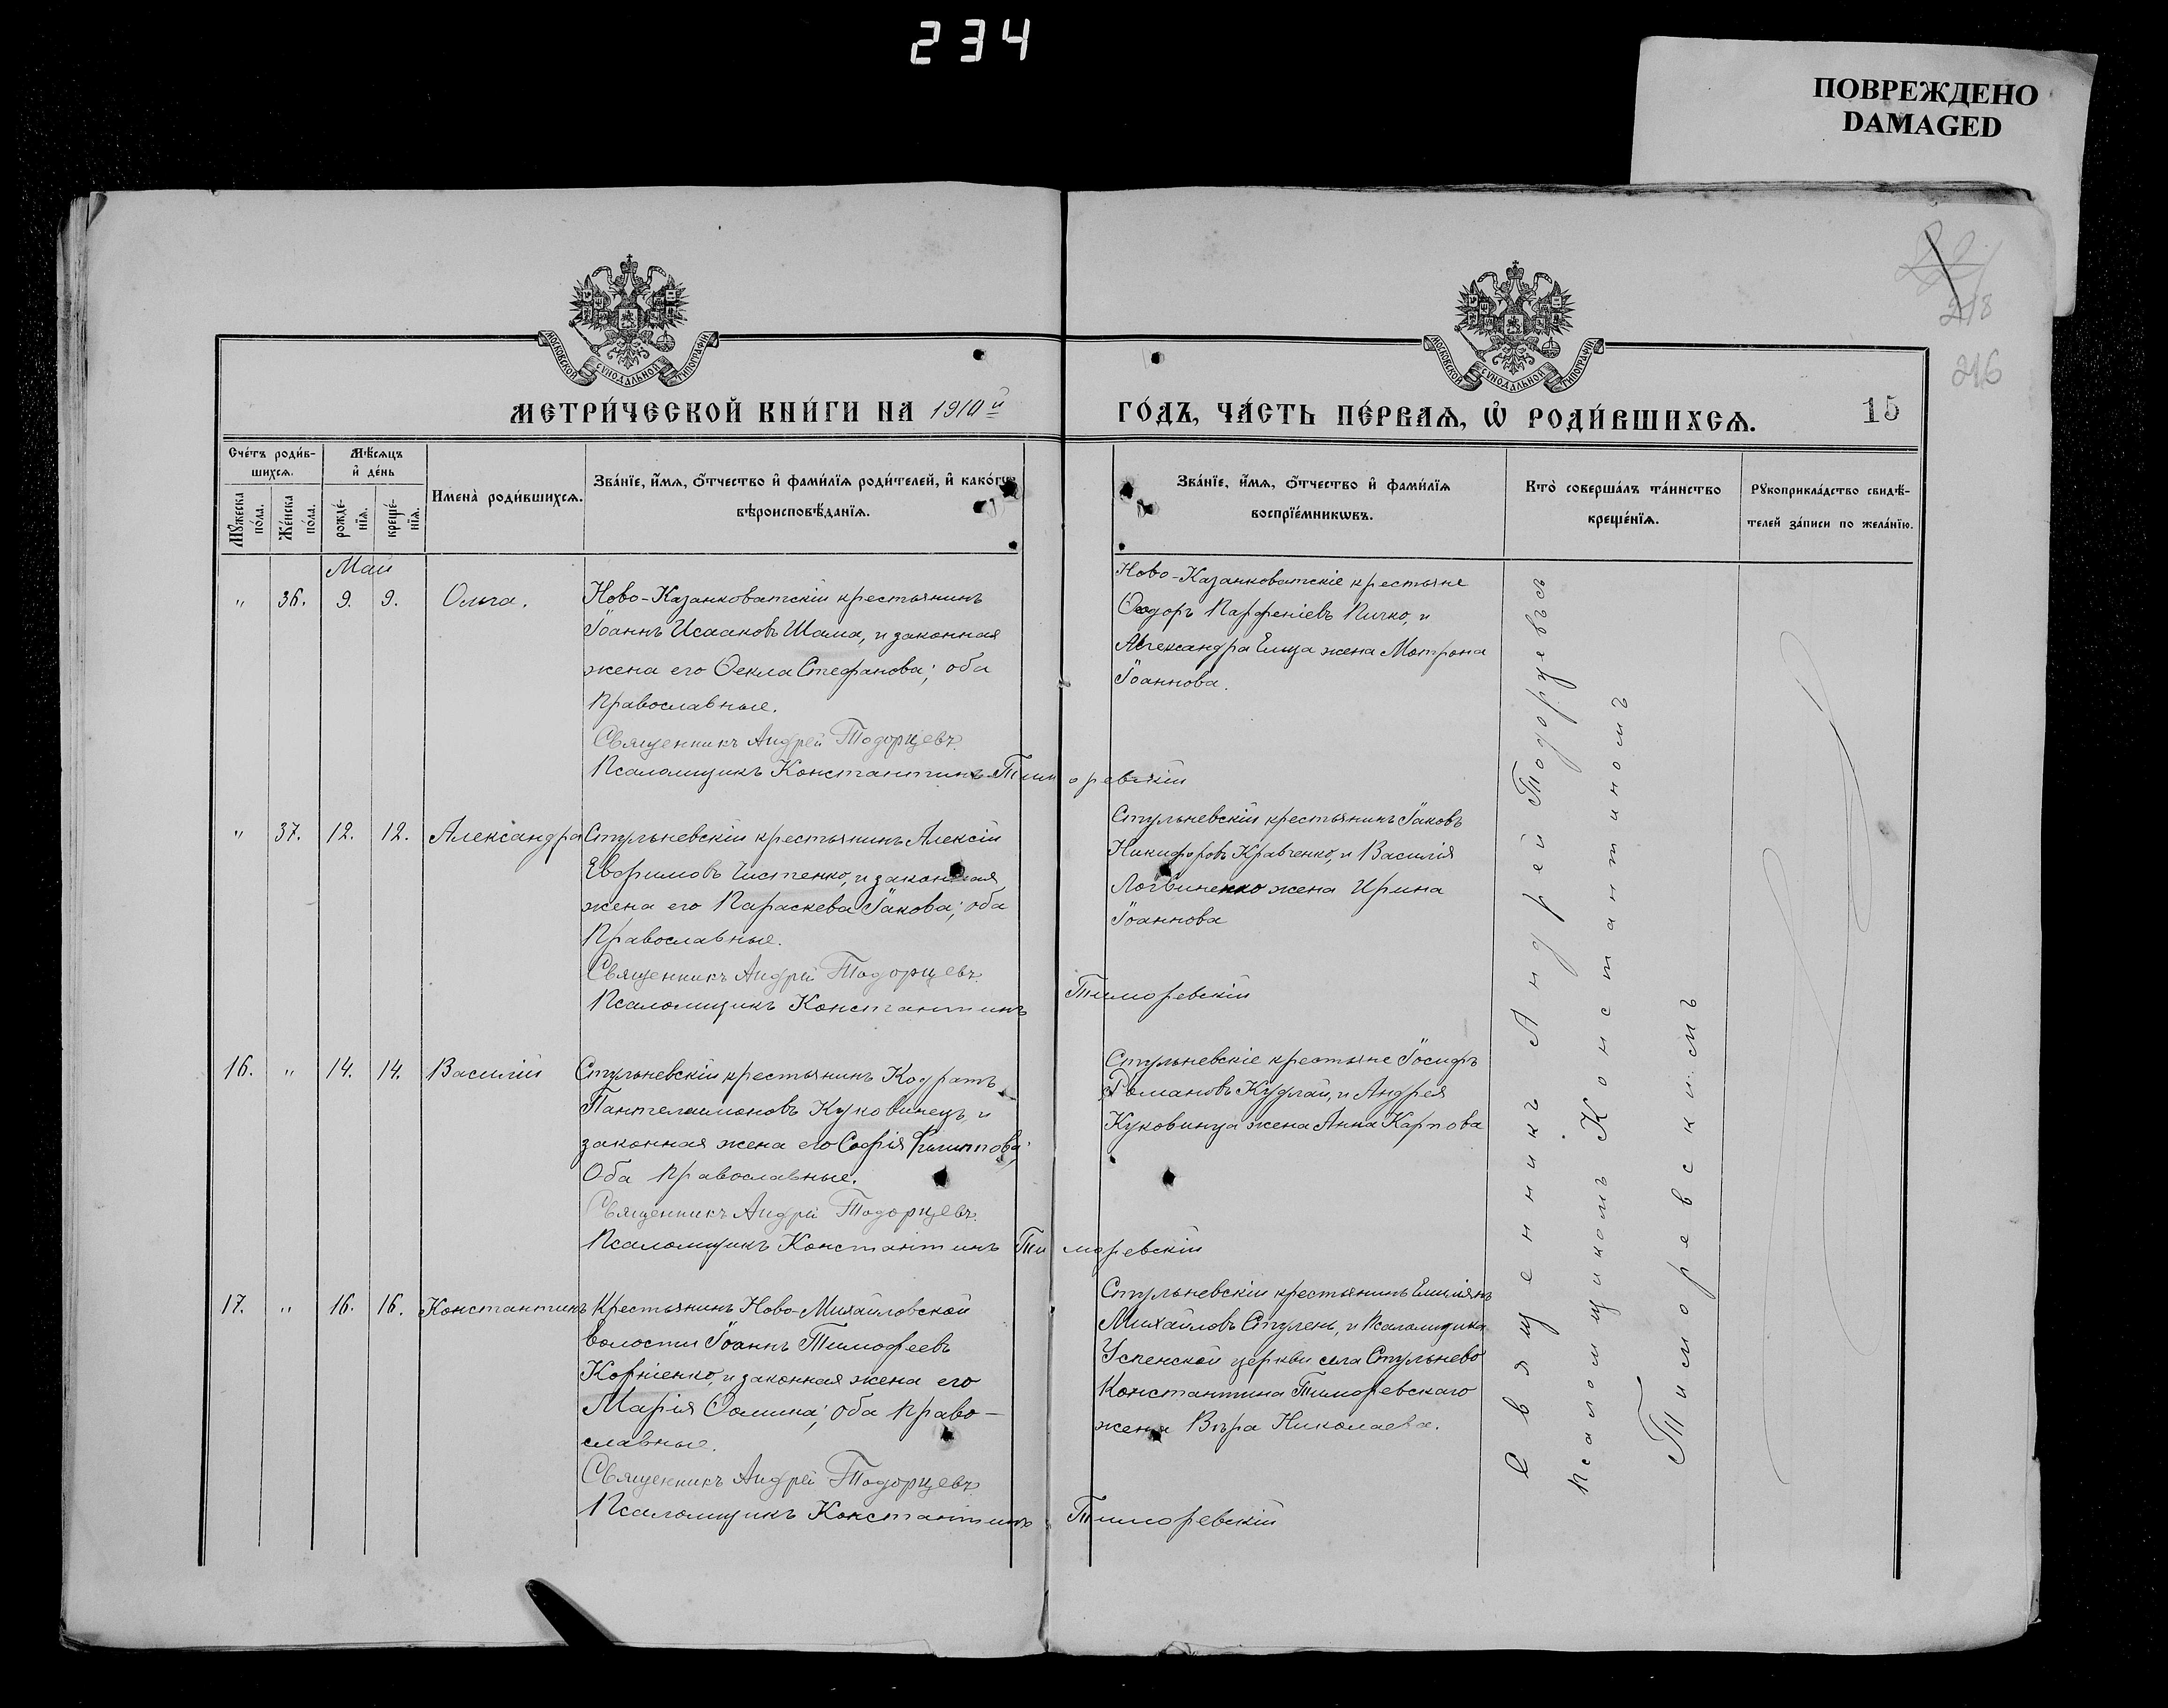 234
ПОВРЕЖДЕНО
DAMAGED
218
216
МОСКОВСКОЙ СѴНОДАЛЬНОЙ ТИПОГРАФІИ
МОСКОВСКОЙ СѴНОДАЛЬНОЙ ТИПОГРАФІИ
МЕТРИ́ЧЕСКОЙ КНИ́ГИ НА 1910й
ГО́ДЪ, ЧА́СТЬ ПЕ́РВАѦ, Ѡ҆ РОДИ́ВШИХСѦ.
15
Сче́тъ роди́в-
шихсѧ.
Мꙋ́жеска по́ла.
Же́нска по́ла.
Мѣ́сѧцъ
и҆ де́нь
рожде́-
нїѧ.
креще́-
нїѧ.
Имена̀ роди́вшихсѧ.
Зва́нїе, и҆́мѧ, ѻ҆́тчество и҆ фами́лїѧ роди́телей, и҆ како́гѡ
вѣроисповѣ́данїѧ.
Зва́нїе, и҆́мѧ, ѻ҆́тчество и҆ фами́лїѧ
воспрїе́мникѡвъ.
Кто̀ соверша́лъ та́инство
креще́нїѧ.
Рꙋкоприкла́дство свидѣ́-
телей за́писи по жела́нїю.
Май
" 36. 9. 9. Ольга.
Ново-Казанковатскій крестьянинъ
Іоаннъ Исааковъ Шама, и законная
жена его Ѳекла Стефанова; оба
Православные.
Священникъ Андрей Тодорцевъ
Псаломщикъ Константинъ Тиморевскій
Ново-Казанковатскіе крестьяне
Ѳеодоръ Парфеніевъ Пичко, и
Александра Елица жена Матрона
Іоаннова.
" 37. 12. 12. Александра
Стульневскій крестьянинъ Алексій
Евфимовъ Чистенко, и законная
жена его Параскева Іакова; оба
Православные.
Священникъ Андрей Тодорцевъ
Псаломщикъ Константинъ Тиморевскій
Стульневскій крестьянинъ Іаковъ
Никифоровъ Кравченко, и Василія
Логвиненко жена Ирина
Іоаннова
16. " 14. 14. Василій
Стульневскій крестьянинъ Кодратъ
Пантелеимоновъ Куковинецъ, и
законная жена его Софія Филиппова;
Оба Православные.
Священникъ Андрей Тодорцевъ
Псаломщикъ Константинъ Тиморевскій
Стульневскіе крестьяне Іосифъ
Романовъ Кудлай, и Андрея
Куковинца жена Анна Карпова
17. " 16. 16. Константинъ
Крестьянинъ Ново-Михайловской
волости Іоаннъ Тимофеевъ
Корніенко, и законная жена его
Марія Ѳомина; оба Право-
славные.
Священникъ Андрей Тодорцевъ
Псаломщикъ Константинъ Тиморевскій
Стульневскій крестьянинъ Емиліанъ
Михайловъ Ступень, и Псаломщика
Успенской церкви села Стульнево
Константина Тиморевскаго
жена Вѣра Николаева.
Священникъ Андрей Тодорцевъ съ
Псаломщикомъ Константиномъ
Тиморевскимъ